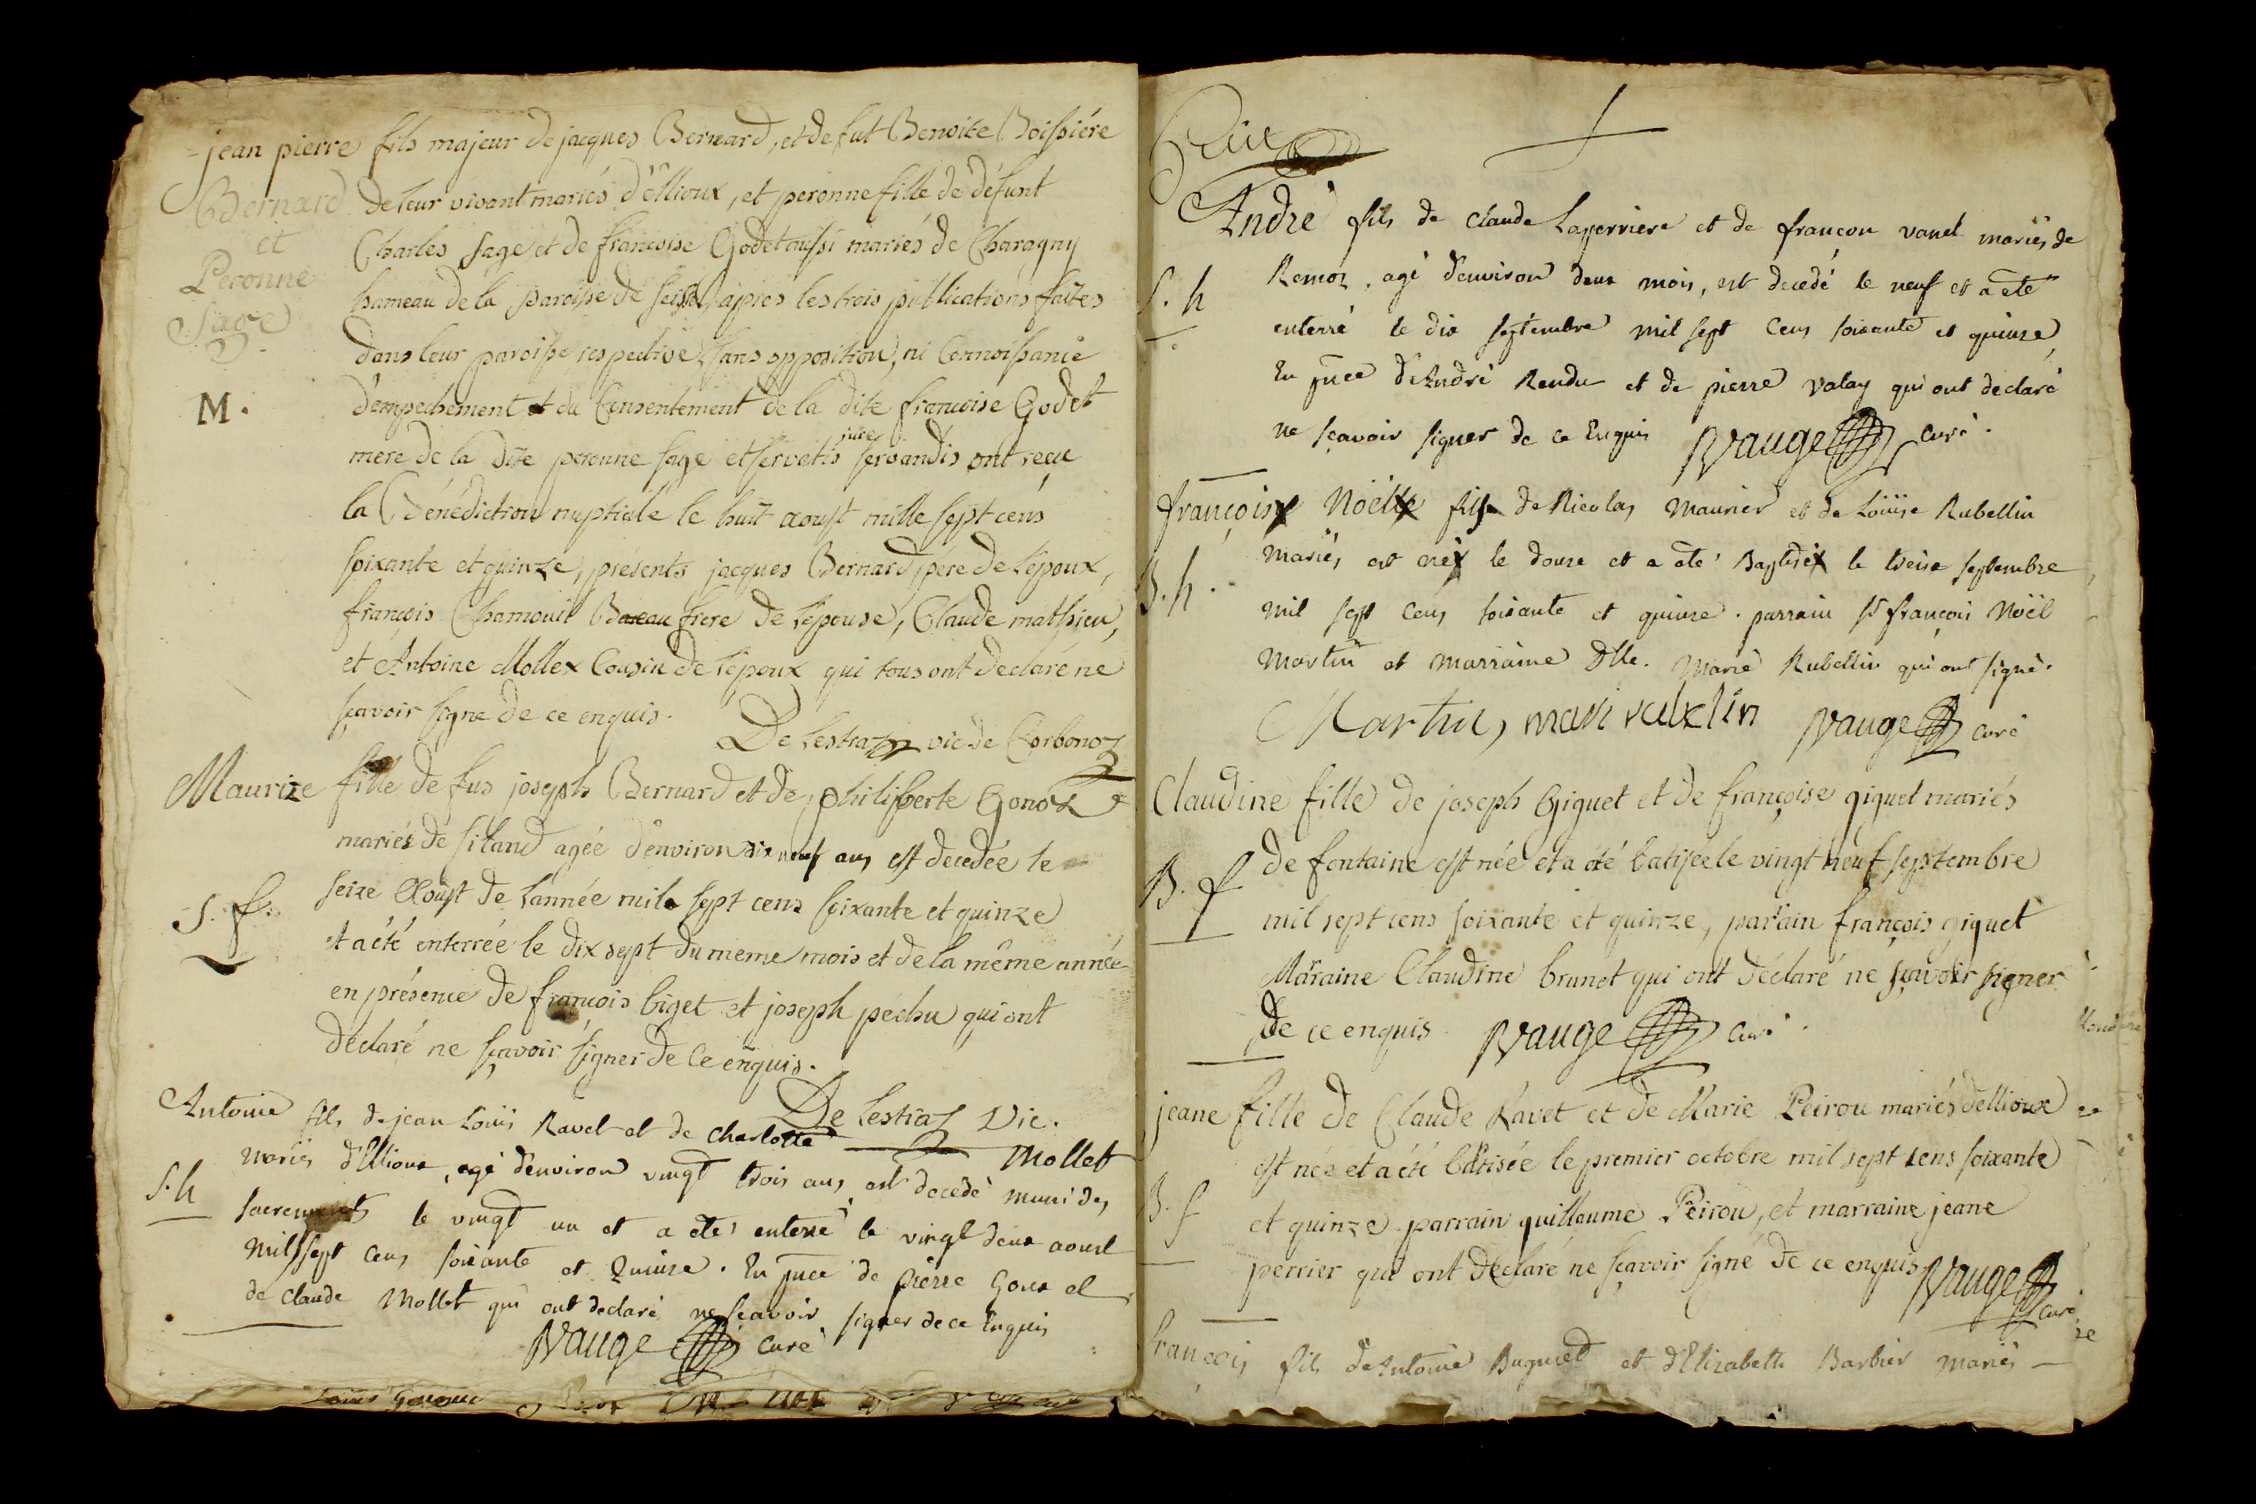 jean pierre fils majeur de jacques Bernard, et de fut Benoite Boissiére
Bernard
et
Peronne
Sage
M.
de leur vivant mariés d'Ellioux, et peronne fille de défunt
Charles sage et de francoise Godet aussi mariés de Charagny
hameau de la paroisse de seissel, àprés les trois publications faites
dans leur paroisse respective sans opposition, ni Connoissance
d'empechement et du Consentement de la dite francoise Godet
mere de la dite peronne sage et servatis jure servandis ont reçu
la Bénédiction nuptiale le huit aoust mille sept cens
soixante et quinze, présents jacques Bernard père de l'époux,
françois Chamouit Bareau frere de l'epouse, Claude mathieu,
et Antoine Mollex Cousin de l'époux qui tous ont declaré ne
sçavoir signe de ce enquis.
De Lestraz vic. de Corbonoz
Maurize fille de fus joseph Bernard et de philiperte Gonoz
mariés de siland agée d'environ dix neuf ans est decedée le
S. f.
seize Aoust de l'année mil sept cens soixante et quinze
et a été enterrée le dix sept du meme mois et de la même année
en présence de françois biget et joseph pechu qui ont
déclaré ne sçavoir signer de ce enquis.
De Lestraz Vic.
Antoine fils de jean Louis Ravet et de Charlotte Mollet
mariés d'Ellioux, agé d'environ vingt trois ans est decedé muni des
S. h
sacrements le vingt un et a été enterré le vingt deux aoust
mil sept cens soixante et Quinze. En pnce de pierre Goux et
de Claude Mollet qui ont declaré ne sçavoir signer de ce Enquis
Vauge Curé
André fils de Claude Laperriere et de françon vanel mariés de
S. h
Remoz, agé d'environ deux mois, est decedé le neuf et a eté
enterré le dix septembre mil sept Cens soixante et quinze,
En pnce d'André Rendu et de pierre valay qui ont declaré
ne sçavoir signer de ce Enquis Vauge Curé.
françois Nöel fils de Nicolas Maurier et de Loüise Rubellin
B. h.
mariés est né le douze et a eté Baptisé le treize septembre
mil sept Cens soixante et quinze. parrain sr françois Noël
Martin et marraine Dlle. Marie Rubellin qui ont signé.
Martin, mari rubelin Vauge curé
Claudine fille de joseph Giguet et de françoise giguet mariés
B. f
de fontaine est née et a été batisée le vingt neuf septembre
mil sept cens soixante et quinze, parain françois giguet
Maraine Claudine brunet qui ont déclaré ne sçavoir signer
de ce enquis. Vauge Curé.
jeane fille de Claude Ravet et de Marie Peirou mariés dellioux
B. f
est nee et a été batisée le premier octobre mil sept cens soixante
et quinze parrain guillaume Peirou, et marraine jeane
perrier qui ont déclaré ne sçavoir signé de ce enquis Vauge
curé
françois fils de Antoine Buguet et d'Elizabeth Barbier mariés